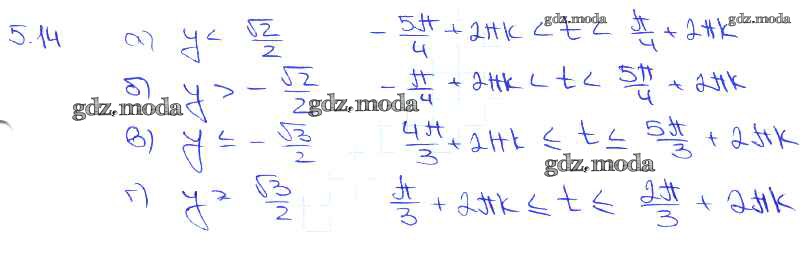 5.14 а) y < √2/2 - 5π/4 + 2πk < t < π/4 + 2πk
б) y > - √2/2 - π/4 + 2πk < t < 5π/4 + 2πk
в) y ≤ - √3/2 4π/3 + 2πk ≤ t ≤ 5π/3 + 2πk
г) y ≥ √3/2 π/3 + 2πk ≤ t ≤ 2π/3 + 2πk
gdz.moda
gdz.moda
gdz.moda
gdz.moda
gdz.moda